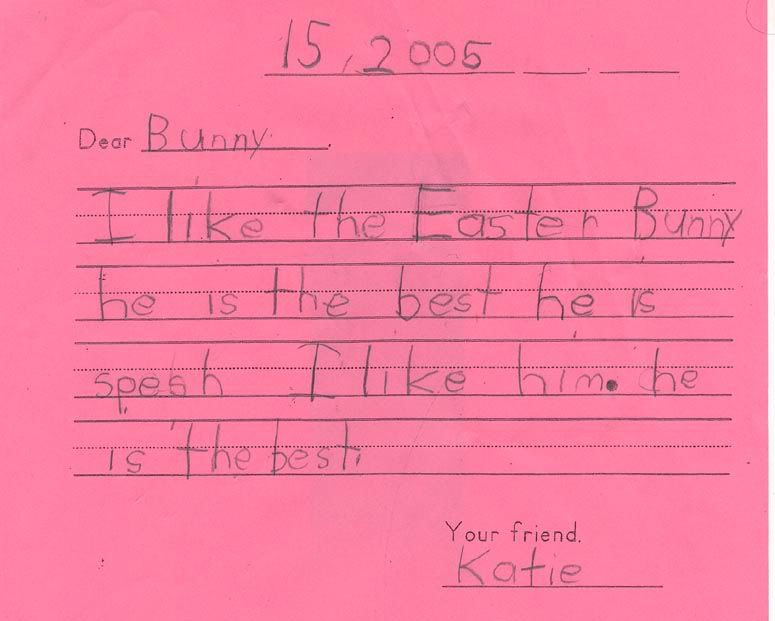 15, 2005
Dear Bunny
I like the Easter Bunny
he is the best he is
spesh I like him. he
is the best.
Your friend,
Katie